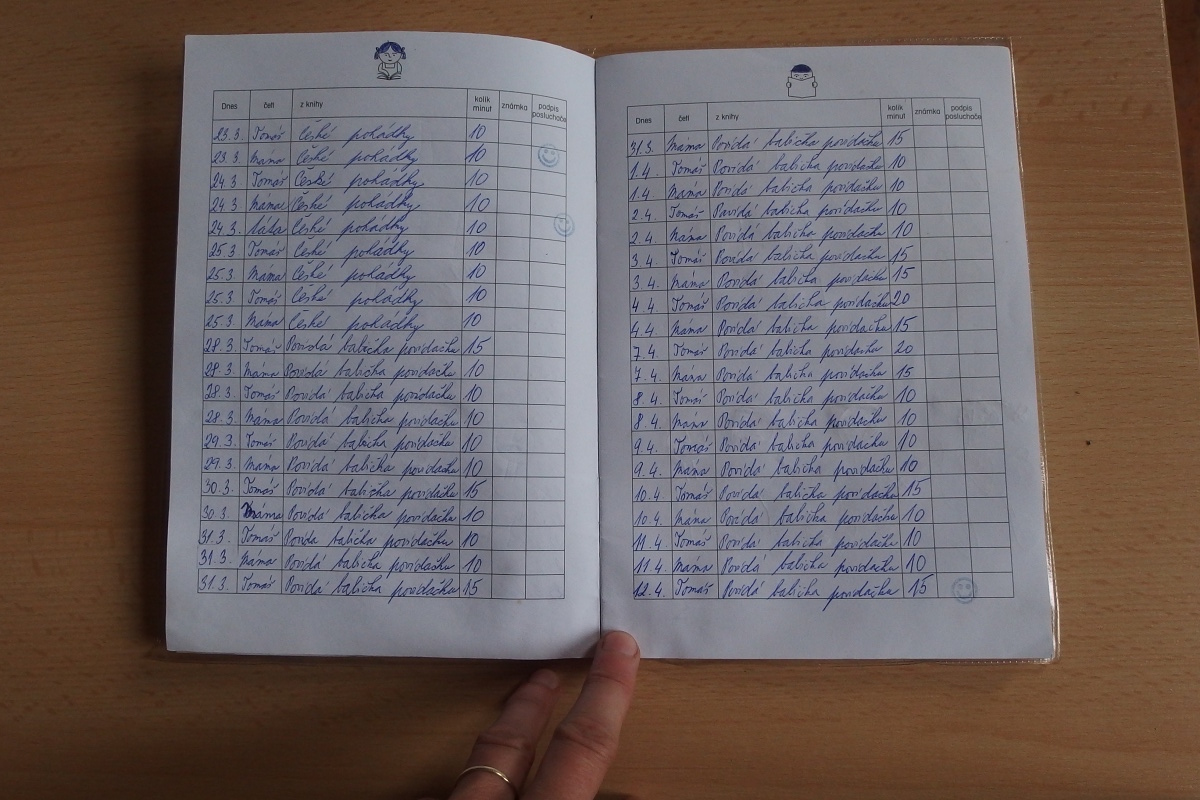 Dnes četl z knihy kolik minut známka podpis posluchače
23.3. Tomáš České pohádky 10
23.3. Máma České pohádky 10
24.3 Tomáš České pohádky 10
24.3 Máma České pohádky 10
24.3. České pohádky 10
25.3 Tomáš České pohádky 10
25.3. Máma České pohádky 10
25.3. Tomáš České pohádky 10
25.3. Máma České pohádky 10
28.3. Tomáš Povídá babička povídačku 15
28.3 Máma Povídá babička povídačku 10
28.3. Tomáš Povídá babička povídačku 10
28.3. Máma Povídá babička povídačku 10
29.3. Tomáš Povídá babička povídačku 10
29.3. Máma Povídá babička povídačku 10
30.3. Tomáš Povídá babička povídačku 15
30.3. Máma Povídá babička povídačku 10
31.3. Tomáš Povídá babička povídačku 10
31.3. Máma Povídá babička povídačku 10
31.3. Tomáš Povídá babička povídačku 15
Dnes četl z knihy kolik minut známka podpis posluchače
31.3. Máma Povídá babička povídačku 15
1.4. Tomáš Povídá babička povídačku 10
1.4. Máma Povídá babička povídačku 10
2.4. Tomáš Povídá babička povídačku 10
2.4. Máma Povídá babička povídačku 10
3.4. Tomáš Povídá babička povídačku 15
3.4. Máma Povídá babička povídačku 15
4.4. Tomáš Povídá babička povídačku 20
4.4. Máma Povídá babička povídačku 15
7.4. Tomáš Povídá babička povídačku 20
7.4. Máma Povídá babička povídačku 15
8.4. Tomáš Povídá babička povídačku 10
8.4. Máma Povídá babička povídačku 10
9.4. Tomáš Povídá babička povídačku 10
9.4. Máma Povídá babička povídačku 10
10.4. Tomáš Povídá babička povídačku 15
10.4. Máma Povídá babička povídačku 10
11.4. Tomáš Povídá babička povídačku 10
11.4. Máma Povídá babička povídačku 10
12.4. Tomáš Povídá babička povídačku 15